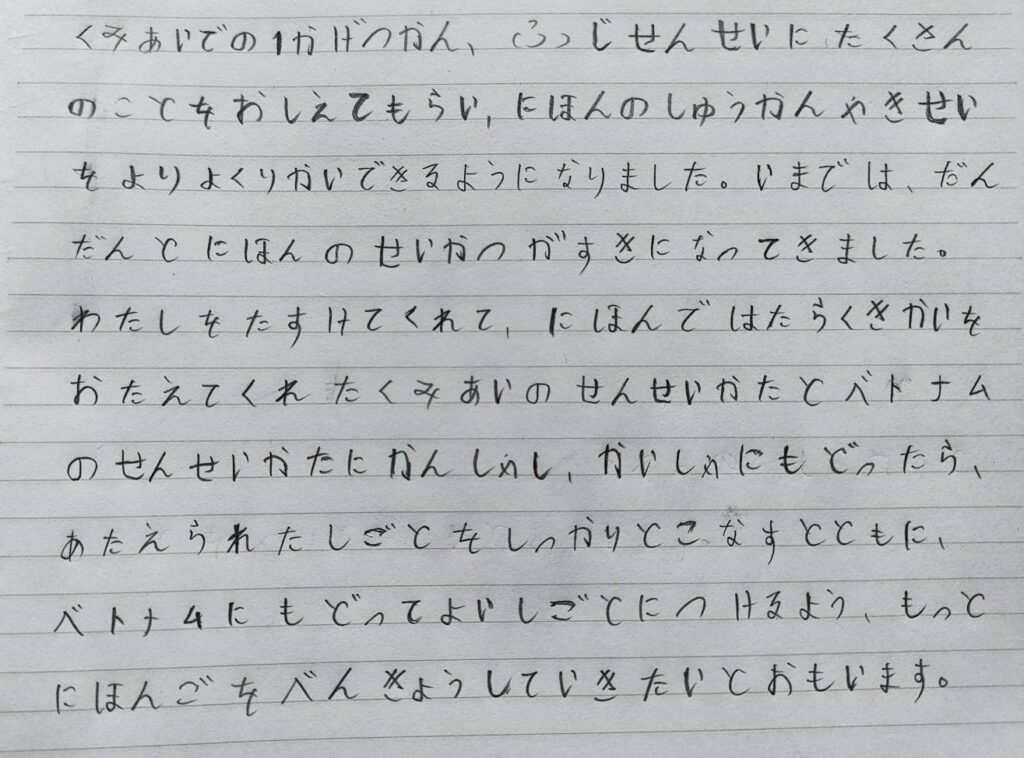 くみあいでの1かげつかん、ふっじせんせいにたくさん
のことをおしえてもらい,にほんのしゅうかんやきせい
をよりよくりかいできるようになりました。いまでは、だん
だんとにほんのせいかつがすきになってきました。
わたしをたすけてくれて,にほんではたらくきかいを
おたえてくれたくみあいのせんせいかたとベトナム
のせんせいかたにかんしゃし,かいしゃにもどったら、
あたえられたしごとをしっかりとこなすとともに、
ベトナムにもどってよいしごとにつけるよう、もっと
にほんごをべんきょうしていきたいとおもいます。